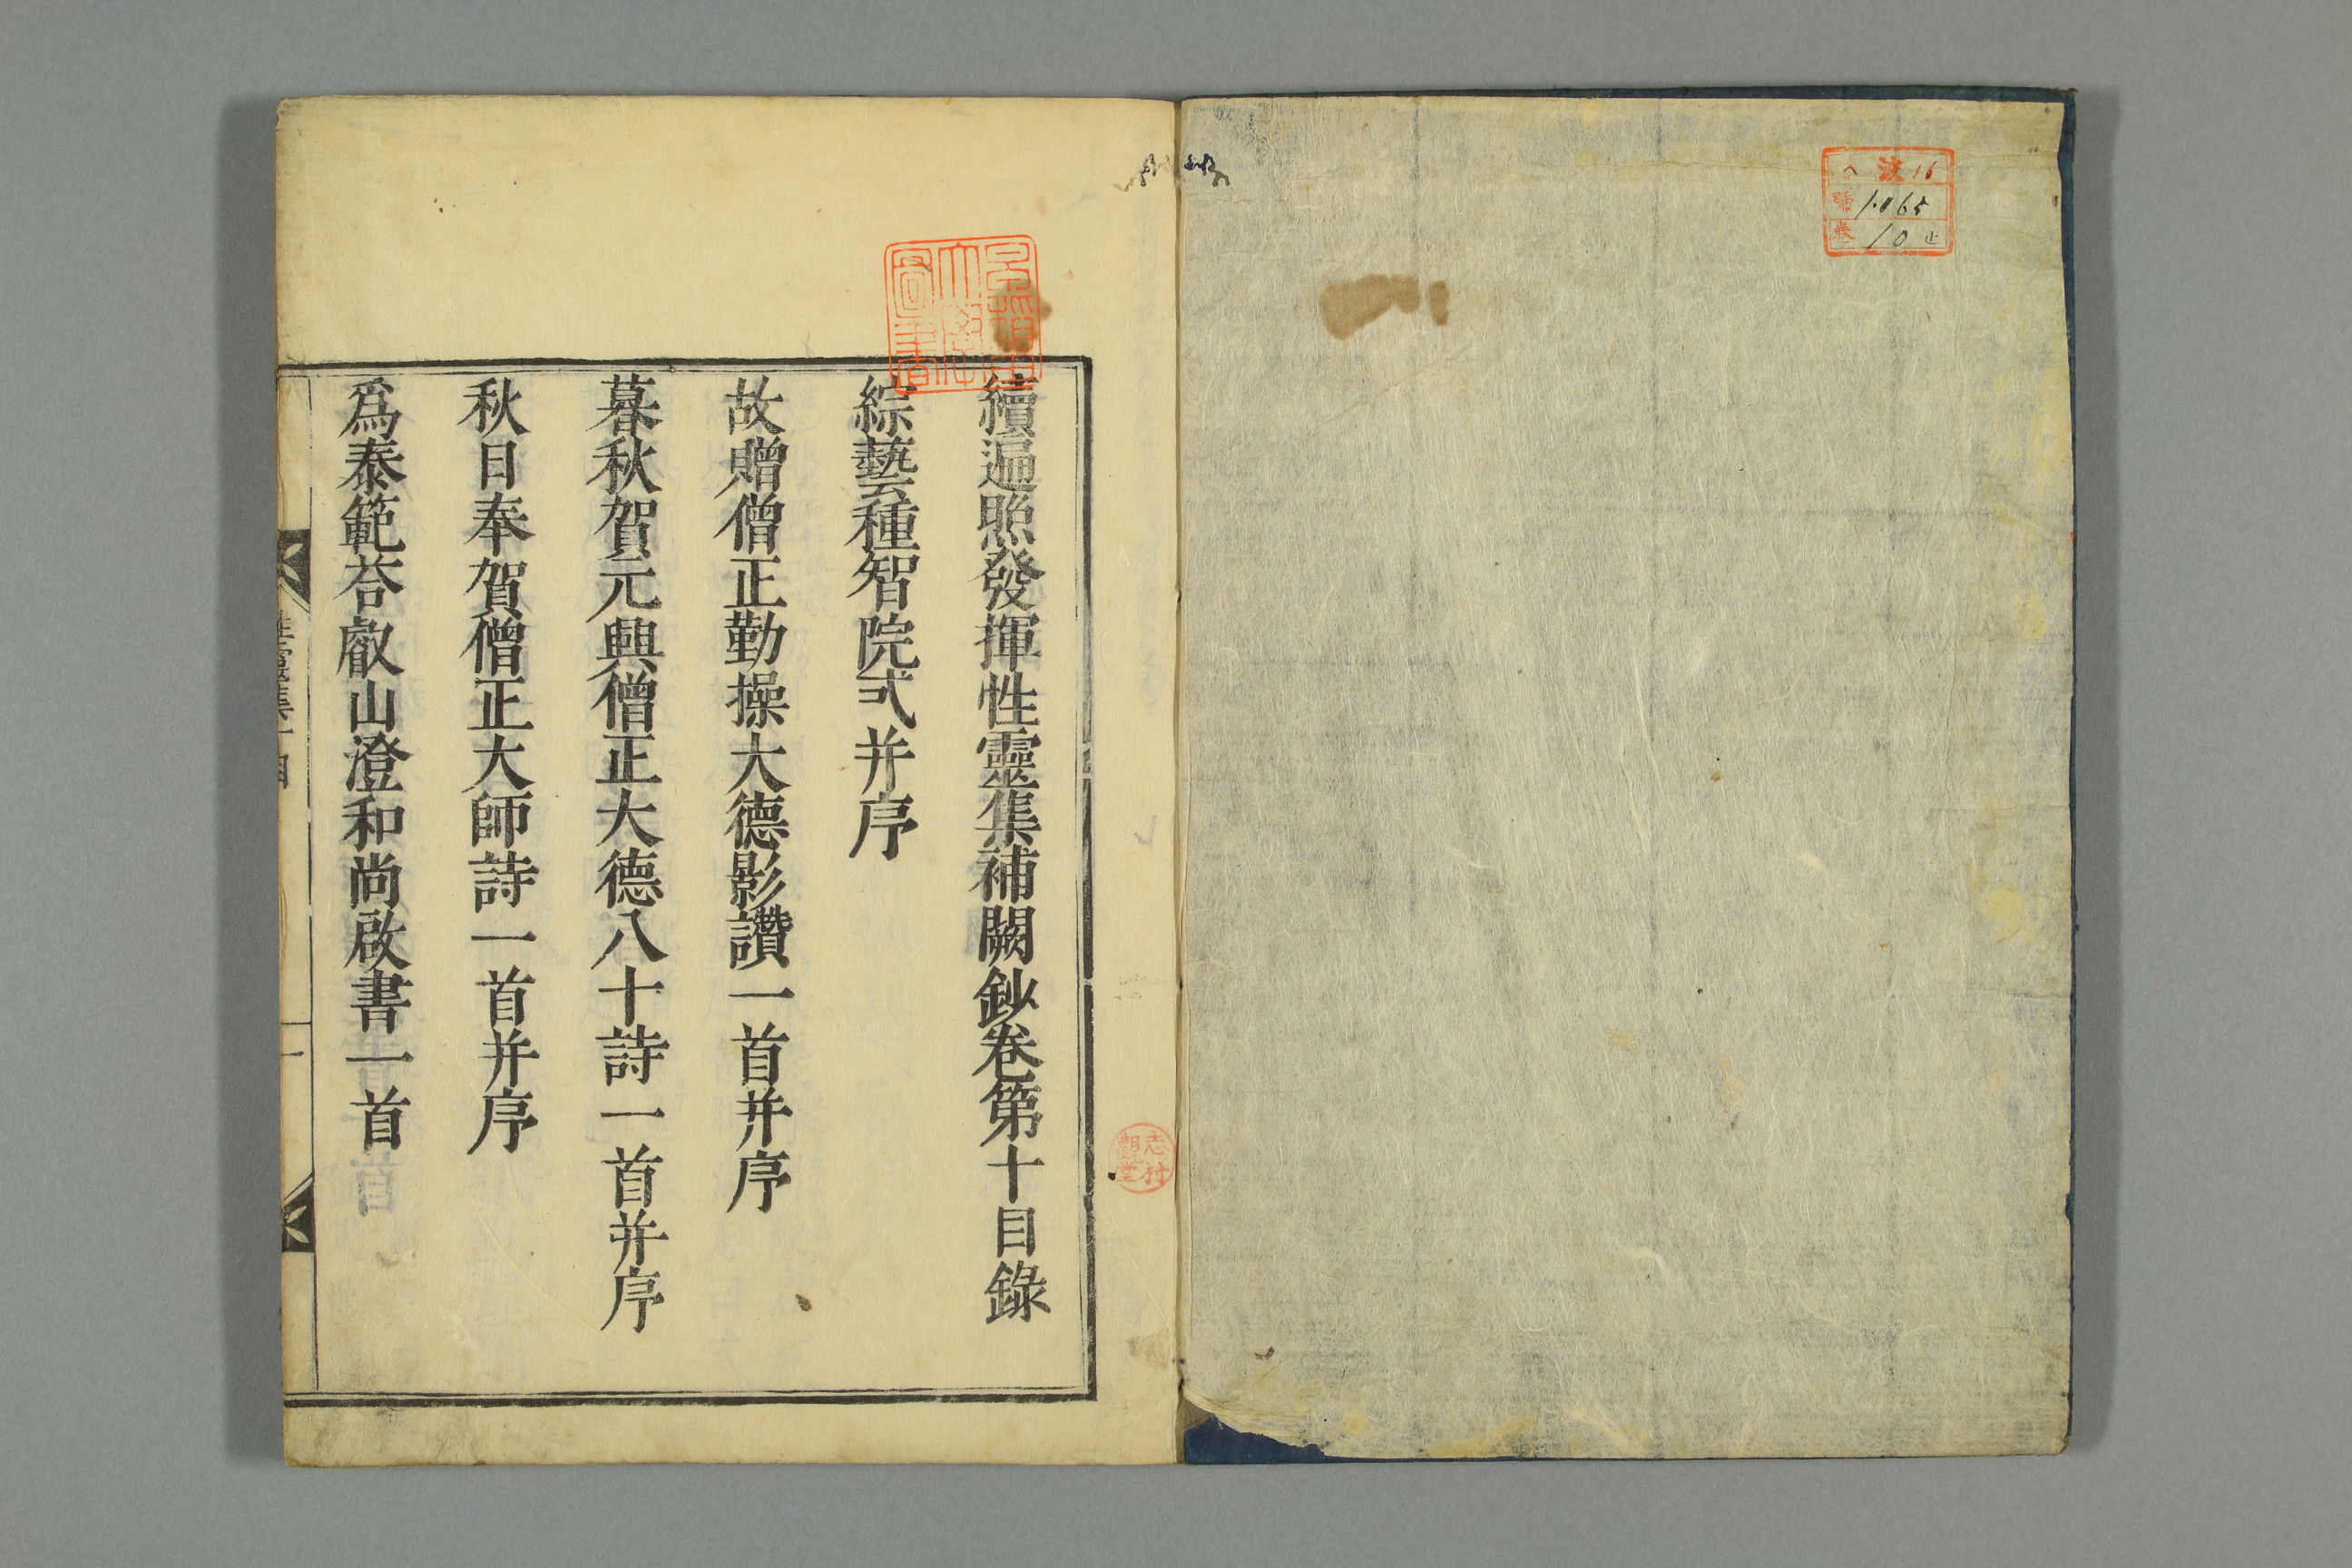 波 16
門 1065
卷 10
志村
觀堂
早稲田
大學
圖書
續遍照發揮性靈集補闕鈔卷第十目錄
綜藝種智院式并序
故贈僧正勤操大德影讚一首并序
暮秋賀元興僧正大德八十詩一首并序
秋日奉賀僧正大師詩一首并序
爲泰範荅叡山澄和尚啟書一首